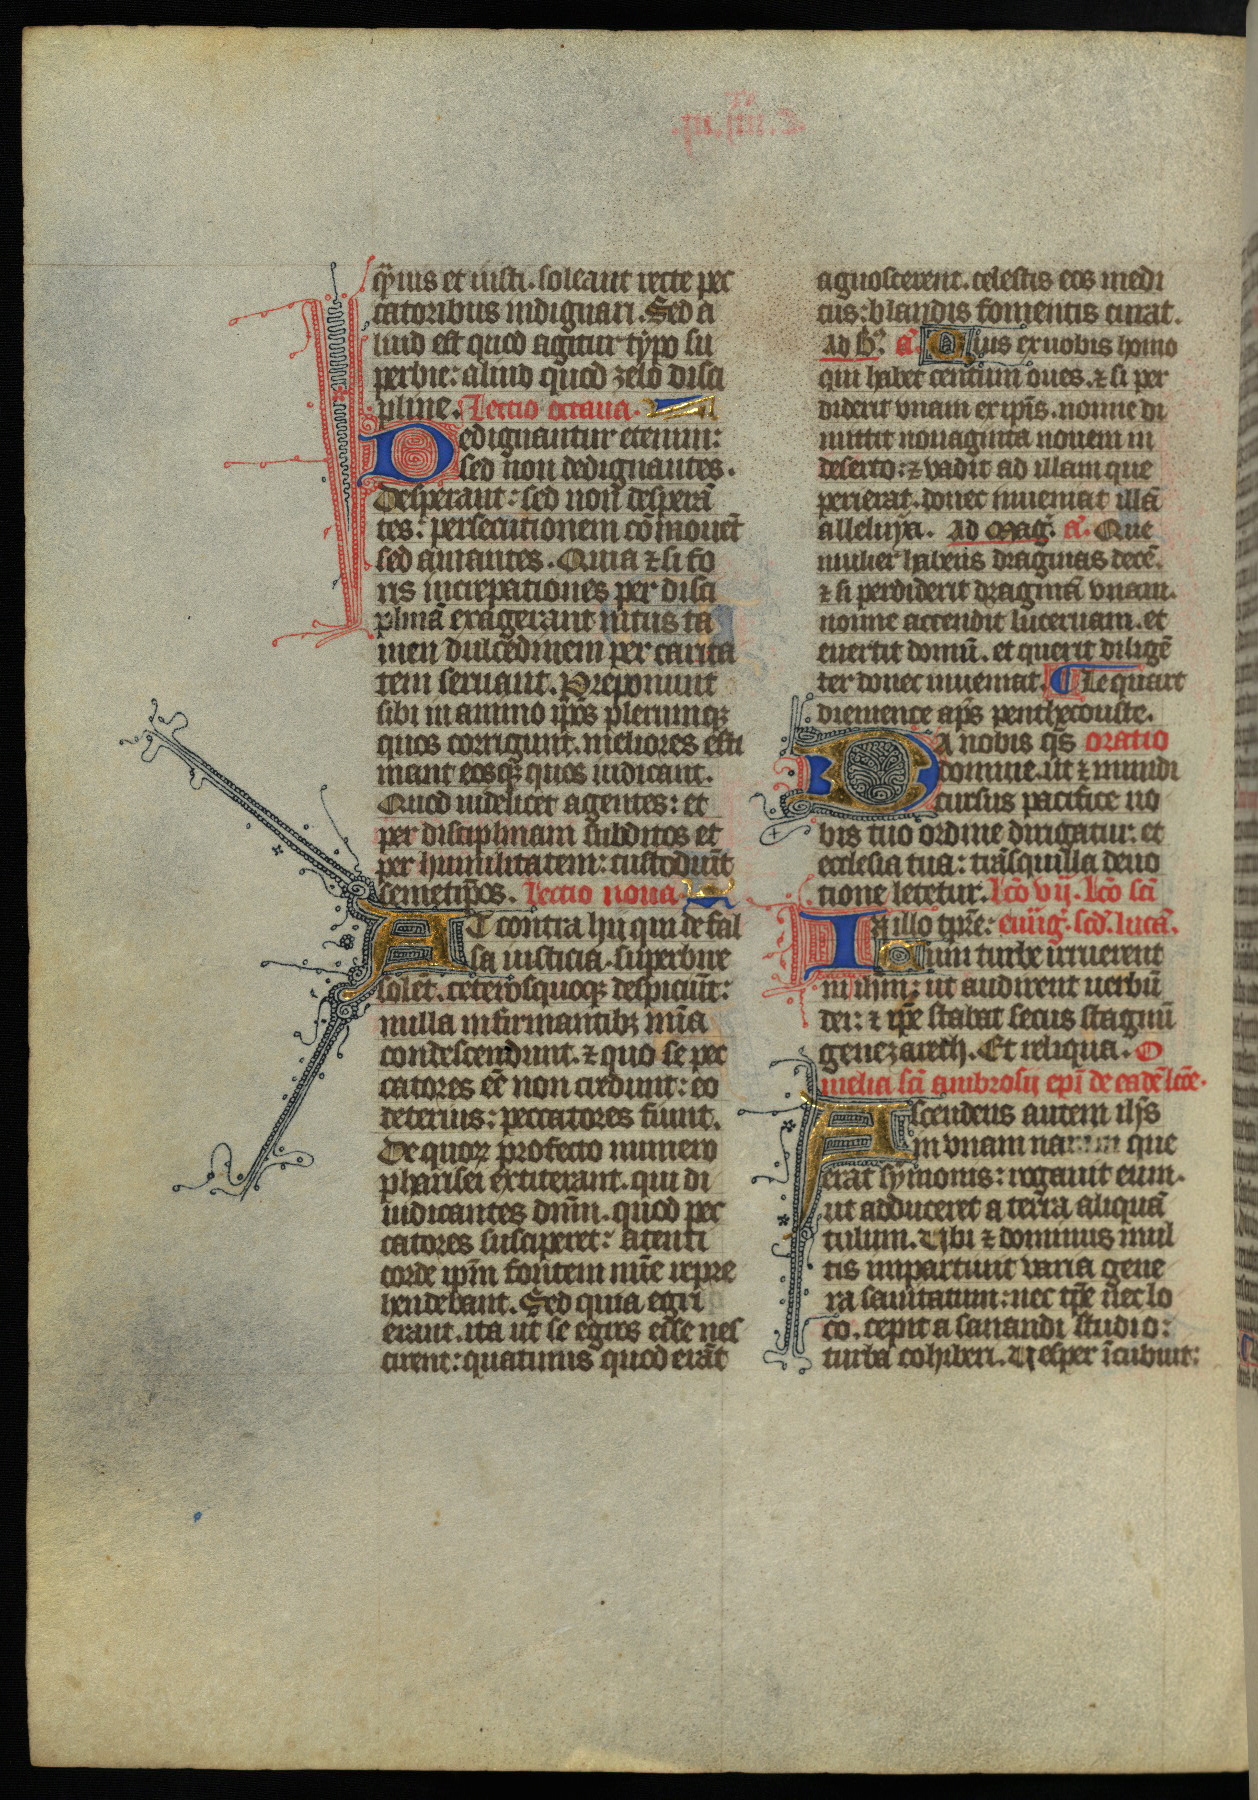 q̃uis et iusti. soleant recte pec
catoribus indignari. Sed a
liud est quod agitur typo su
perbie: aliud quod zelo disci
pline. Lectio octaua.
Dedignantur etenim:
sed non dedignantes.
Desperant: sed non desperā
tes: persecutionem cōmouēt
sed amantes. Quia ⁊ si fo
ris increpationes per disci
plinā exagerant intus ta
men dulcedinem per carita
tem seruant. Preponunt
sibi in animo ip̄os plerumq;
quos corrigunt. meliores esti
mant eos q̄q; quos iudicant.
Quod uidelicet agentes: et
per disciplinam subditos et
per humilitatem: custodiūt
semetip̄os. Lectio nona.
At contra hii qui de fal
sa iusticia. superbire
solēt. ceterosquoq; despiciūt:
nulla infirmantib; mīa
condescendunt. ⁊ quo se pec
catores eē non credunt: eo
deterius: peccatores fiunt.
De quoꝝ profecto numero
pharisei extiterant. qui di
iudicantes dn̄m. quod pec
catores susciperet: arenti
corde ip̄m fontem mīe repre
hendebant. Sed quia egri
erant. ita ut se egros esse nes
cirent: quatinus quod erāt
agnoscerent. celestis eos medi
cus: blandis fomentis curat.
Ad b̄. a. Quis ex uobis homo
qui habet centum oues. ⁊ si per
diderit vnam ex ip̄is. nonne di
mittit nonaginta nouem in
deserto: ⁊ vadit ad illam que
perierat. donec inueniat illā
alleluya. Ad mag̃. a. Que
mulier habens dragmas decē.
⁊ si perdiderit dragmā vnam.
nonne accendit lucernam. et
euertit domū. et querit diligē
ter donec inueniat. Le quart
diemence ap̄s penthecouste.
Da nobis q̄s oratio
domine. ut ⁊ mundi
cursus pacifice no
bis tuo ordine dirigatur: et
ecclesia tua: trāsquilla deuo
tione letetur. Lc̄o vij. Lc̄o sc̄i
In illo tp̄re: euūg. scd̄. lucā.
Cum turbe irruerent
in ih̄m: ut audirent uerbū
dei: ⁊ ip̄e stabat secus stagnū
genezareth. Et reliqua. O
melia sc̄i ambrosij ep̄i de eadē lc̄oe.
Ascendens autem ih̄s
in vnam nauim que
erat symonis: rogauit eum.
ut adduceret a terra aliquā
tulum. Ubi ⁊ dominus mul
tis impartiuit varia gene
ra sanitatum: nec tp̄e nec lo
co. cepit a sanandi studio:
turba cohiberi. Vesper īcubuit: